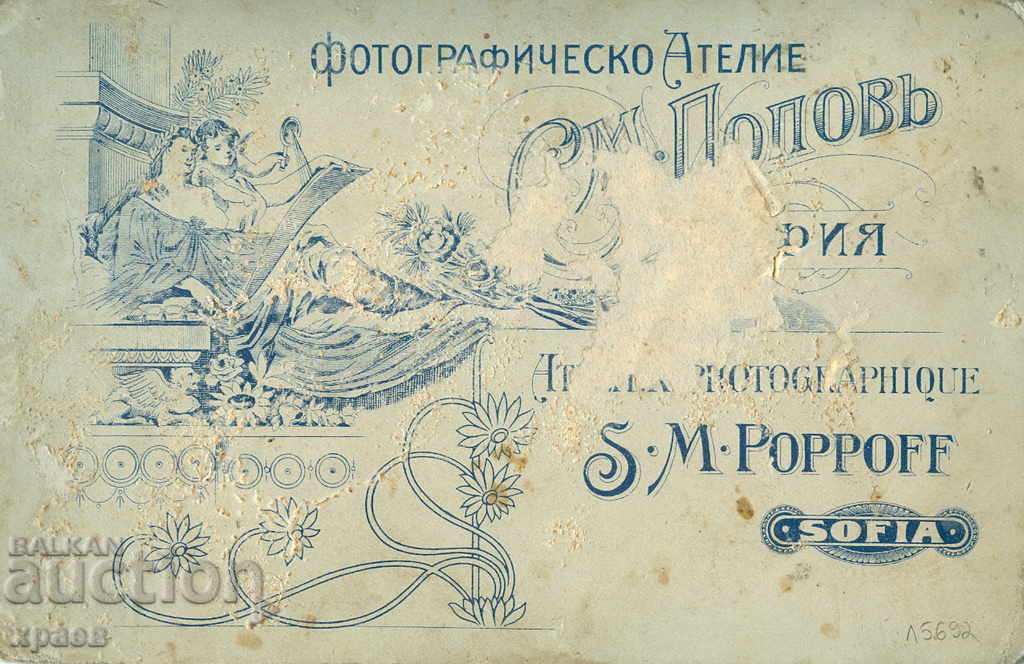 ФОТОГРАФИЧЕСКО АТЕЛИЕ
СМ. ПОПОВЪ
PHOTOGRAPHIQUE
S. M. POPPOFF
SOFIA
BALKAN
auction
храов